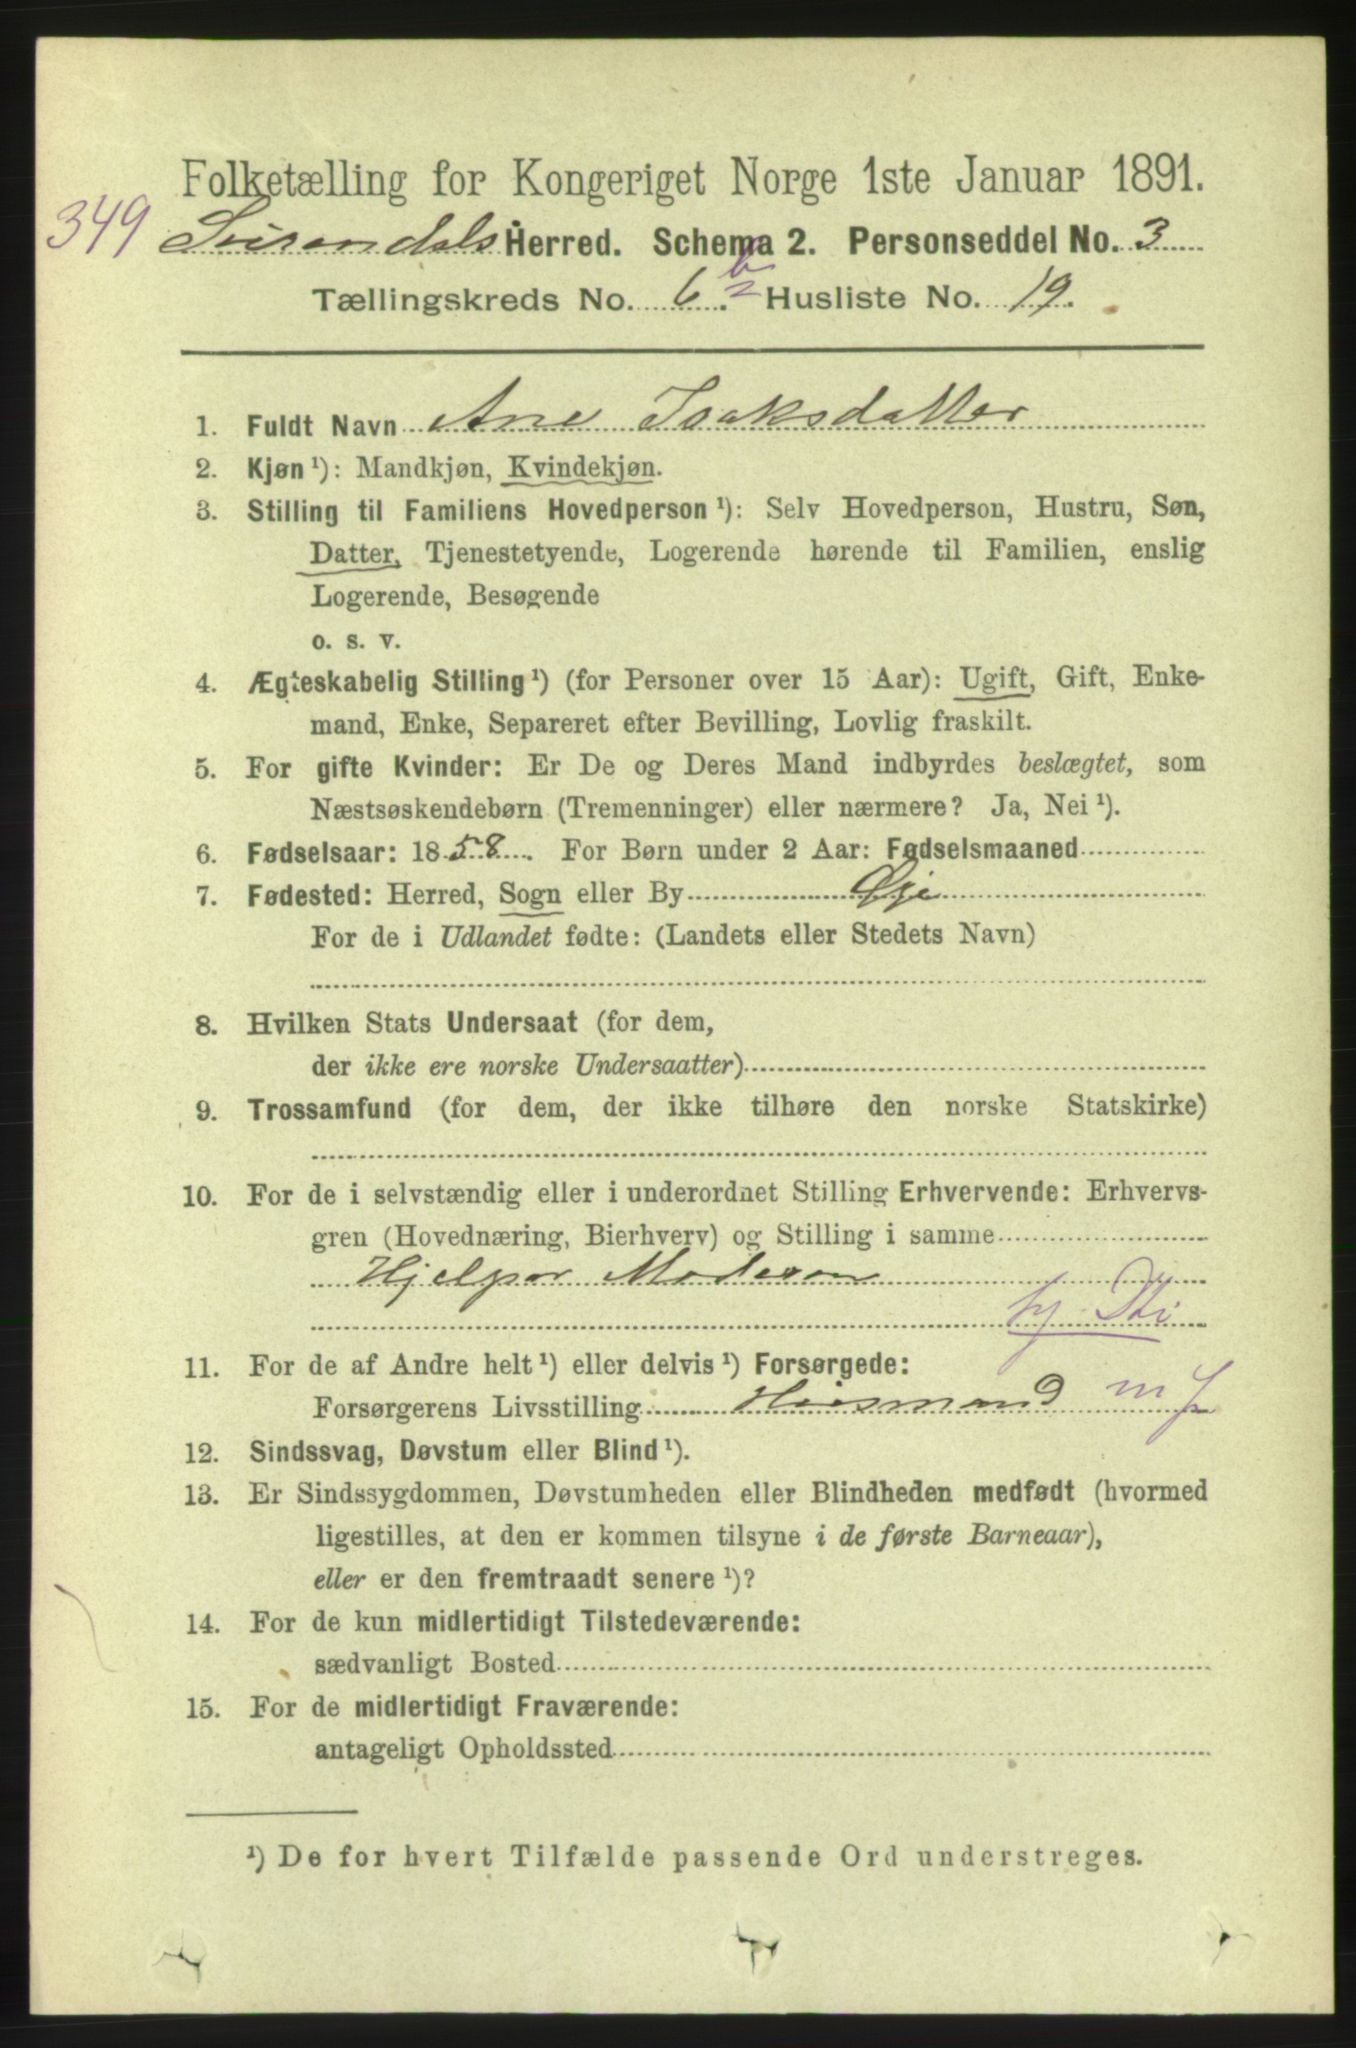 Folketælling for Kongeriget Norge 1ste Januar 1891.
349 Sirendals Herred. Schema 2. Personseddel No. 3
Tællingskreds No. 6. b Husliste No. 19.
1. Fuldt Navn Ane Isaksdatter
2. Kjøn ¹): Mandkjøn, Kvindekjøn.
3. Stilling til Familiens Hovedperson ¹): Selv Hovedperson, Hustru, Søn,
Datter, Tjenestetyende, Logerende hørende til Familien, enslig
Logerende, Besøgende
o. s. v.
4. Ægteskabelig Stilling ¹) (for Personer over 15 Aar): Ugift, Gift, Enke-
mand, Enke, Separeret efter Bevilling, Lovlig fraskilt.
5. For gifte Kvinder: Er De og Deres Mand indbyrdes beslægtet, som
Næstsøskendebørn (Tremenninger) eller nærmere? Ja, Nei ¹).
6. Fødselsaar: 1858. For Børn under 2 Aar: Fødselsmaaned
7. Fødested: Herred, Sogn eller By Øie
For de i Udlandet fødte: (Landets eller Stedets Navn)
8. Hvilken Stats Undersaat (for dem,
der ikke ere norske Undersaatter)
9. Trossamfund (for dem, der ikke tilhøre den norske Statskirke)
10. For de i selvstændig eller i underordnet Stilling Erhvervende: Erhvervs-
gren (Hovednæring, Bierhverv) og Stilling i samme
Hjelper Moderen
11. For de af Andre helt ¹) eller delvis ¹) Forsørgede:
Forsørgerens Livsstilling Huusmand m J
12. Sindssvag, Døvstum eller Blind ¹).
13. Er Sindssygdommen, Døvstumheden eller Blindheden medfødt (hvormed
ligestilles, at den er kommen tilsyne i de første Barneaar),
eller er den fremtraadt senere ¹)?
14. For de kun midlertidigt Tilstedeværende:
sædvanligt Bosted
15. For de midlertidigt Fraværende:
antageligt Opholdssted
¹) De for hvert Tilfælde passende Ord understreges.